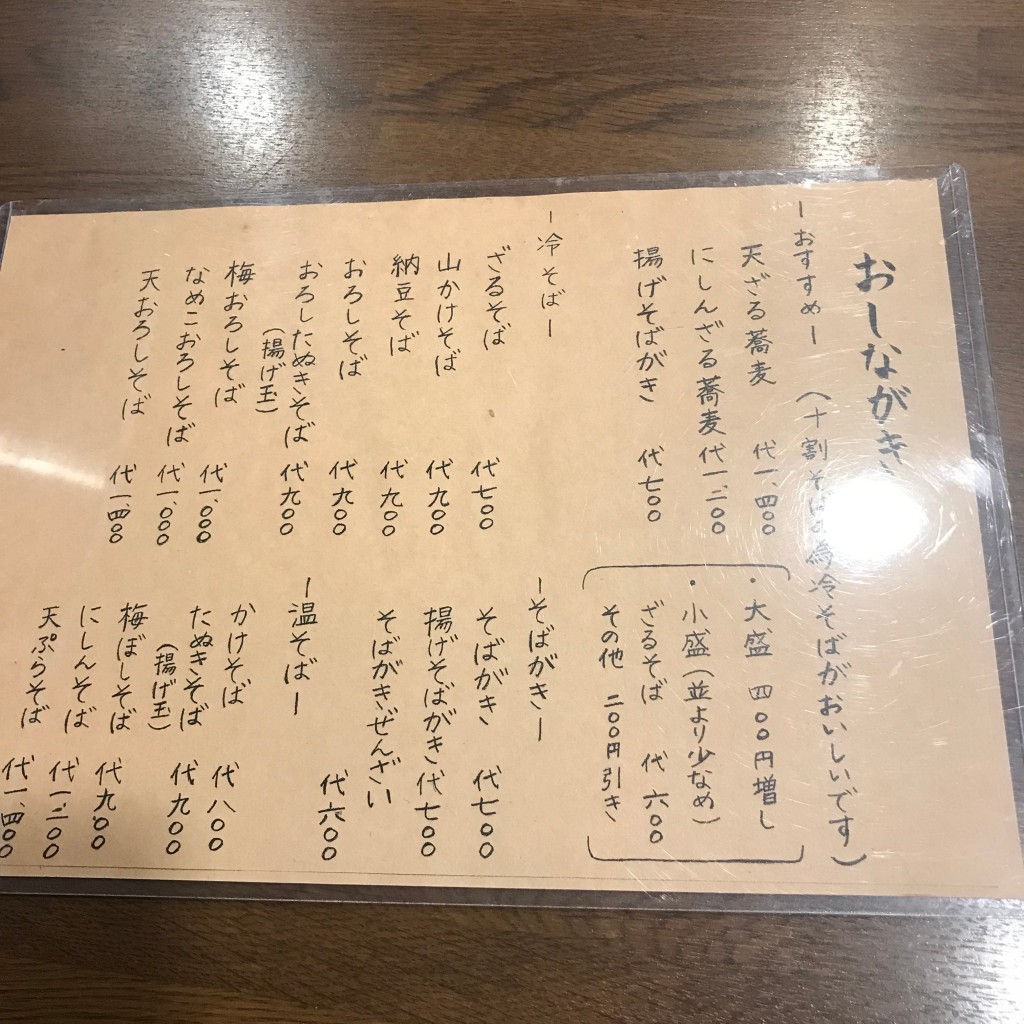 おしながき
ーおすすめー (十割そばの為冷そばがおいしいです)
天ざる蕎麦 代一、四〇〇
にしんざる蕎麦 代一、二〇〇
揚げそばがき 代七〇〇
・大盛 四〇〇円増し
・小盛(並より少なめ)
ざるそば 代 六〇〇
その他 二〇〇円引き
ー冷そばー
ざるそば 代七〇〇
山かけそば 代九〇〇
納豆そば 代九〇〇
おろしそば 代九〇〇
おろしたぬきそば 代九〇〇
(揚げ玉)
梅おろしそば 代一、〇〇〇
なめこおろしそば 代一、〇〇〇
天おろしそば 代一、四〇〇
ーそばがきー
そばがき 代七〇〇
揚げそばがき 代七〇〇
そばがきぜんざい
代六〇〇
ー温そばー
かけそば 代八〇〇
たぬきそば 代九〇〇
(揚げ玉)
梅ぼしそば 代九〇〇
にしんそば 代一、二〇〇
天ぷらそば 代一、四〇〇